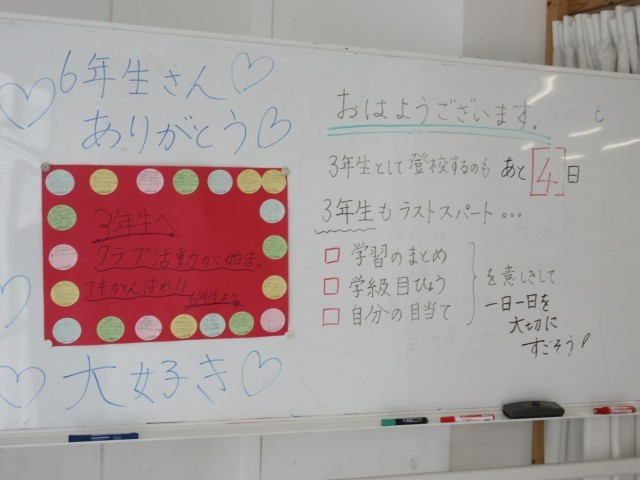 6年生さん
ありがとう
3年生へ
クラブ活動が始ま
てもがんばれ!!
6年生より
大好き
おはようございます。
3年生として登校するのも あと 4 日
3年生もラストスパート…
学習のまとめ
学級目ひょう
自分の目当て
を意しきして
一日一日を
大切に
すごそう!